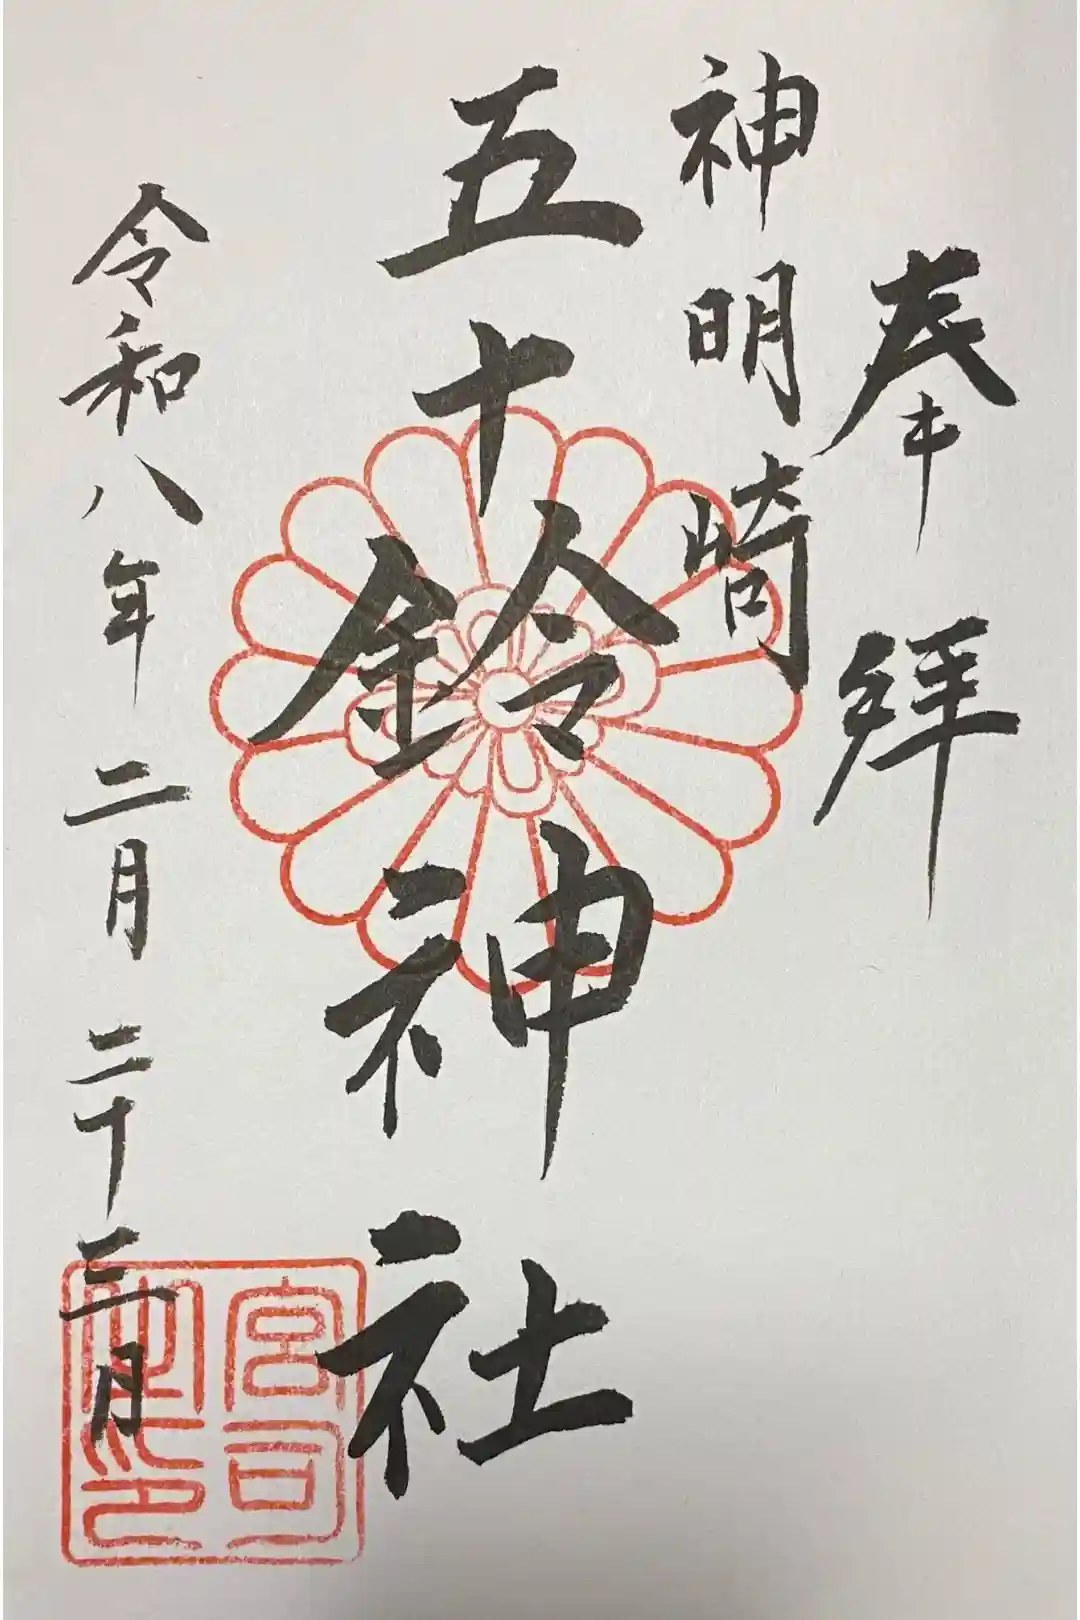 奉拝
神明崎
五十鈴神社
令和八年二月二十三日
宮司之印